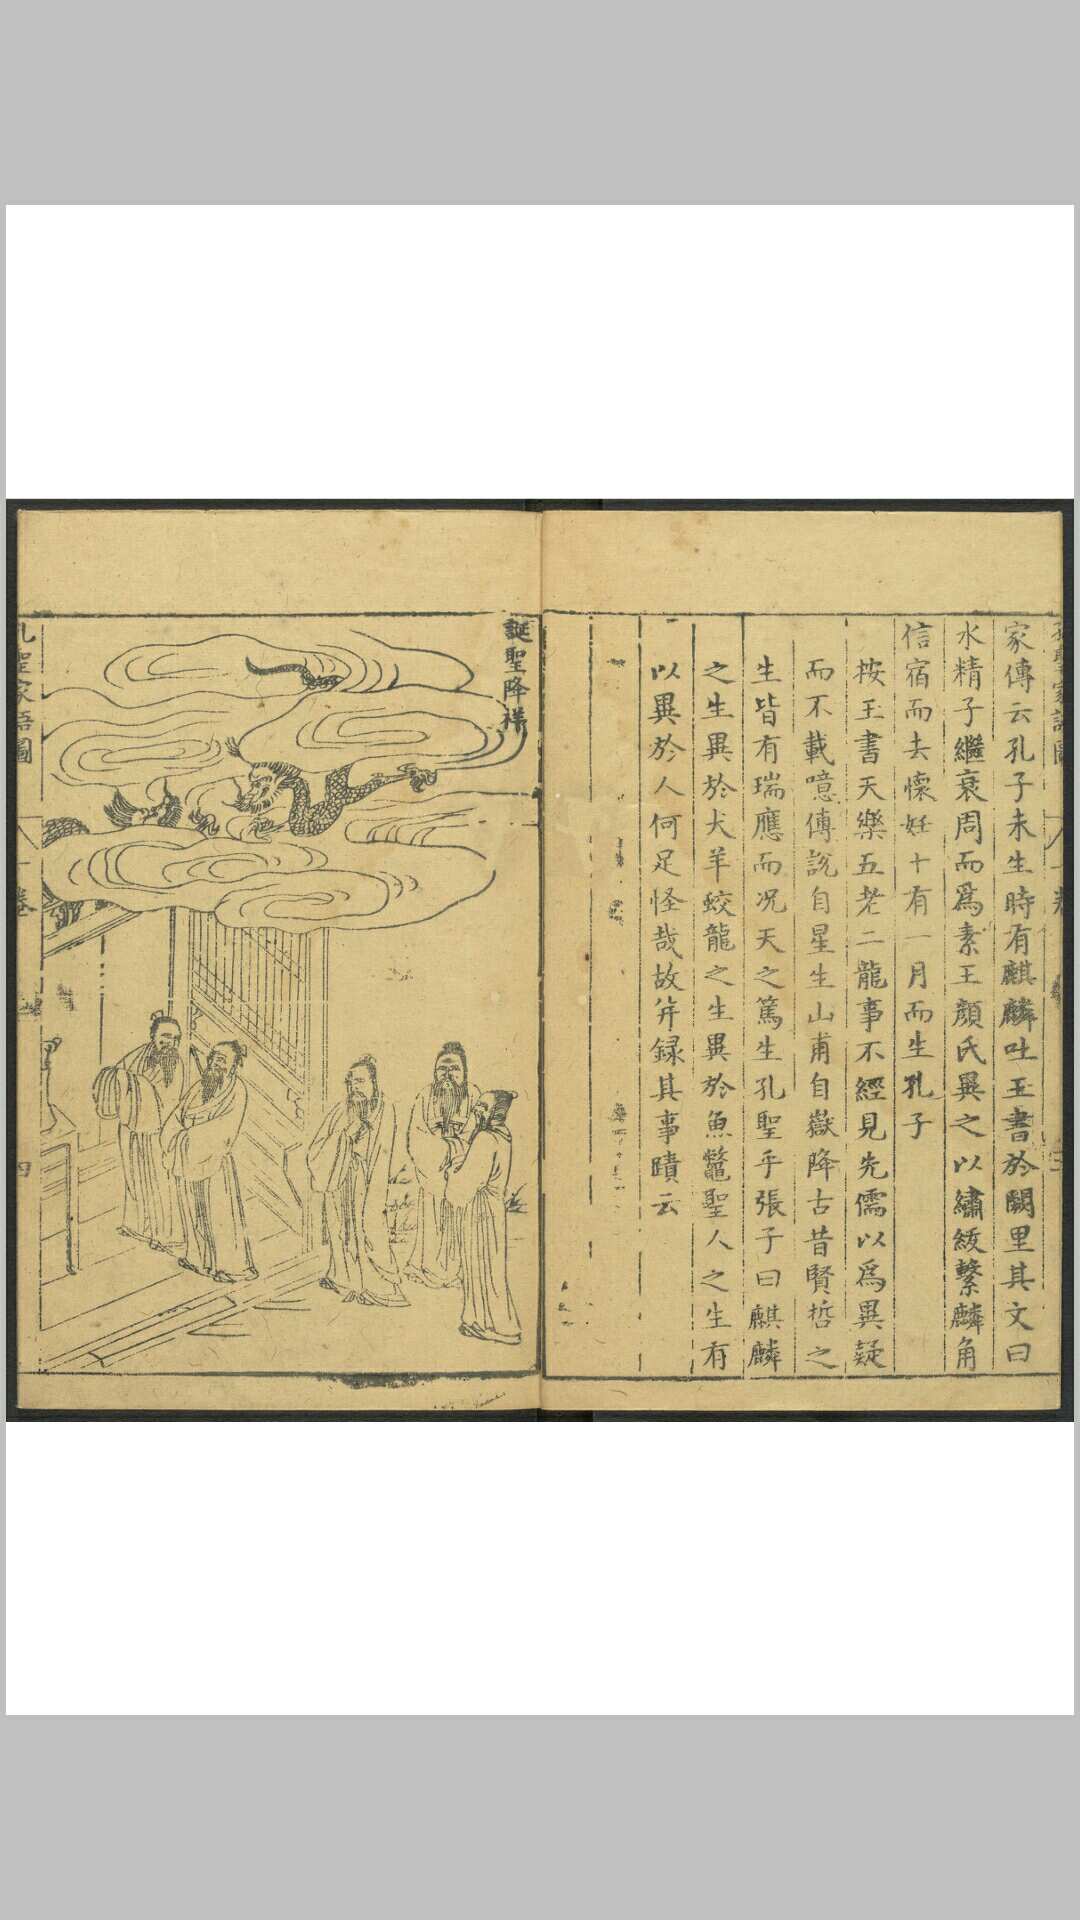 家傳云孔子未生時有麒麟吐玉書於闕里其文曰
水精子繼衰周而爲素王顏氏異之以繡紱繫麟角
信宿而去懷妊十有一月而生孔子
按玉書天樂五老二龍事不經見先儒以爲異疑
而不載噫傳說自星生山甫自嶽降古昔賢哲之
生皆有瑞應而况天之篤生孔聖乎張子曰麒麟
之生異於犬羊蛟龍之生異於魚鼈聖人之生有
以異於人何足怪哉故并録其事蹟云
誕聖降祥
孔聖家語圖
一卷
四